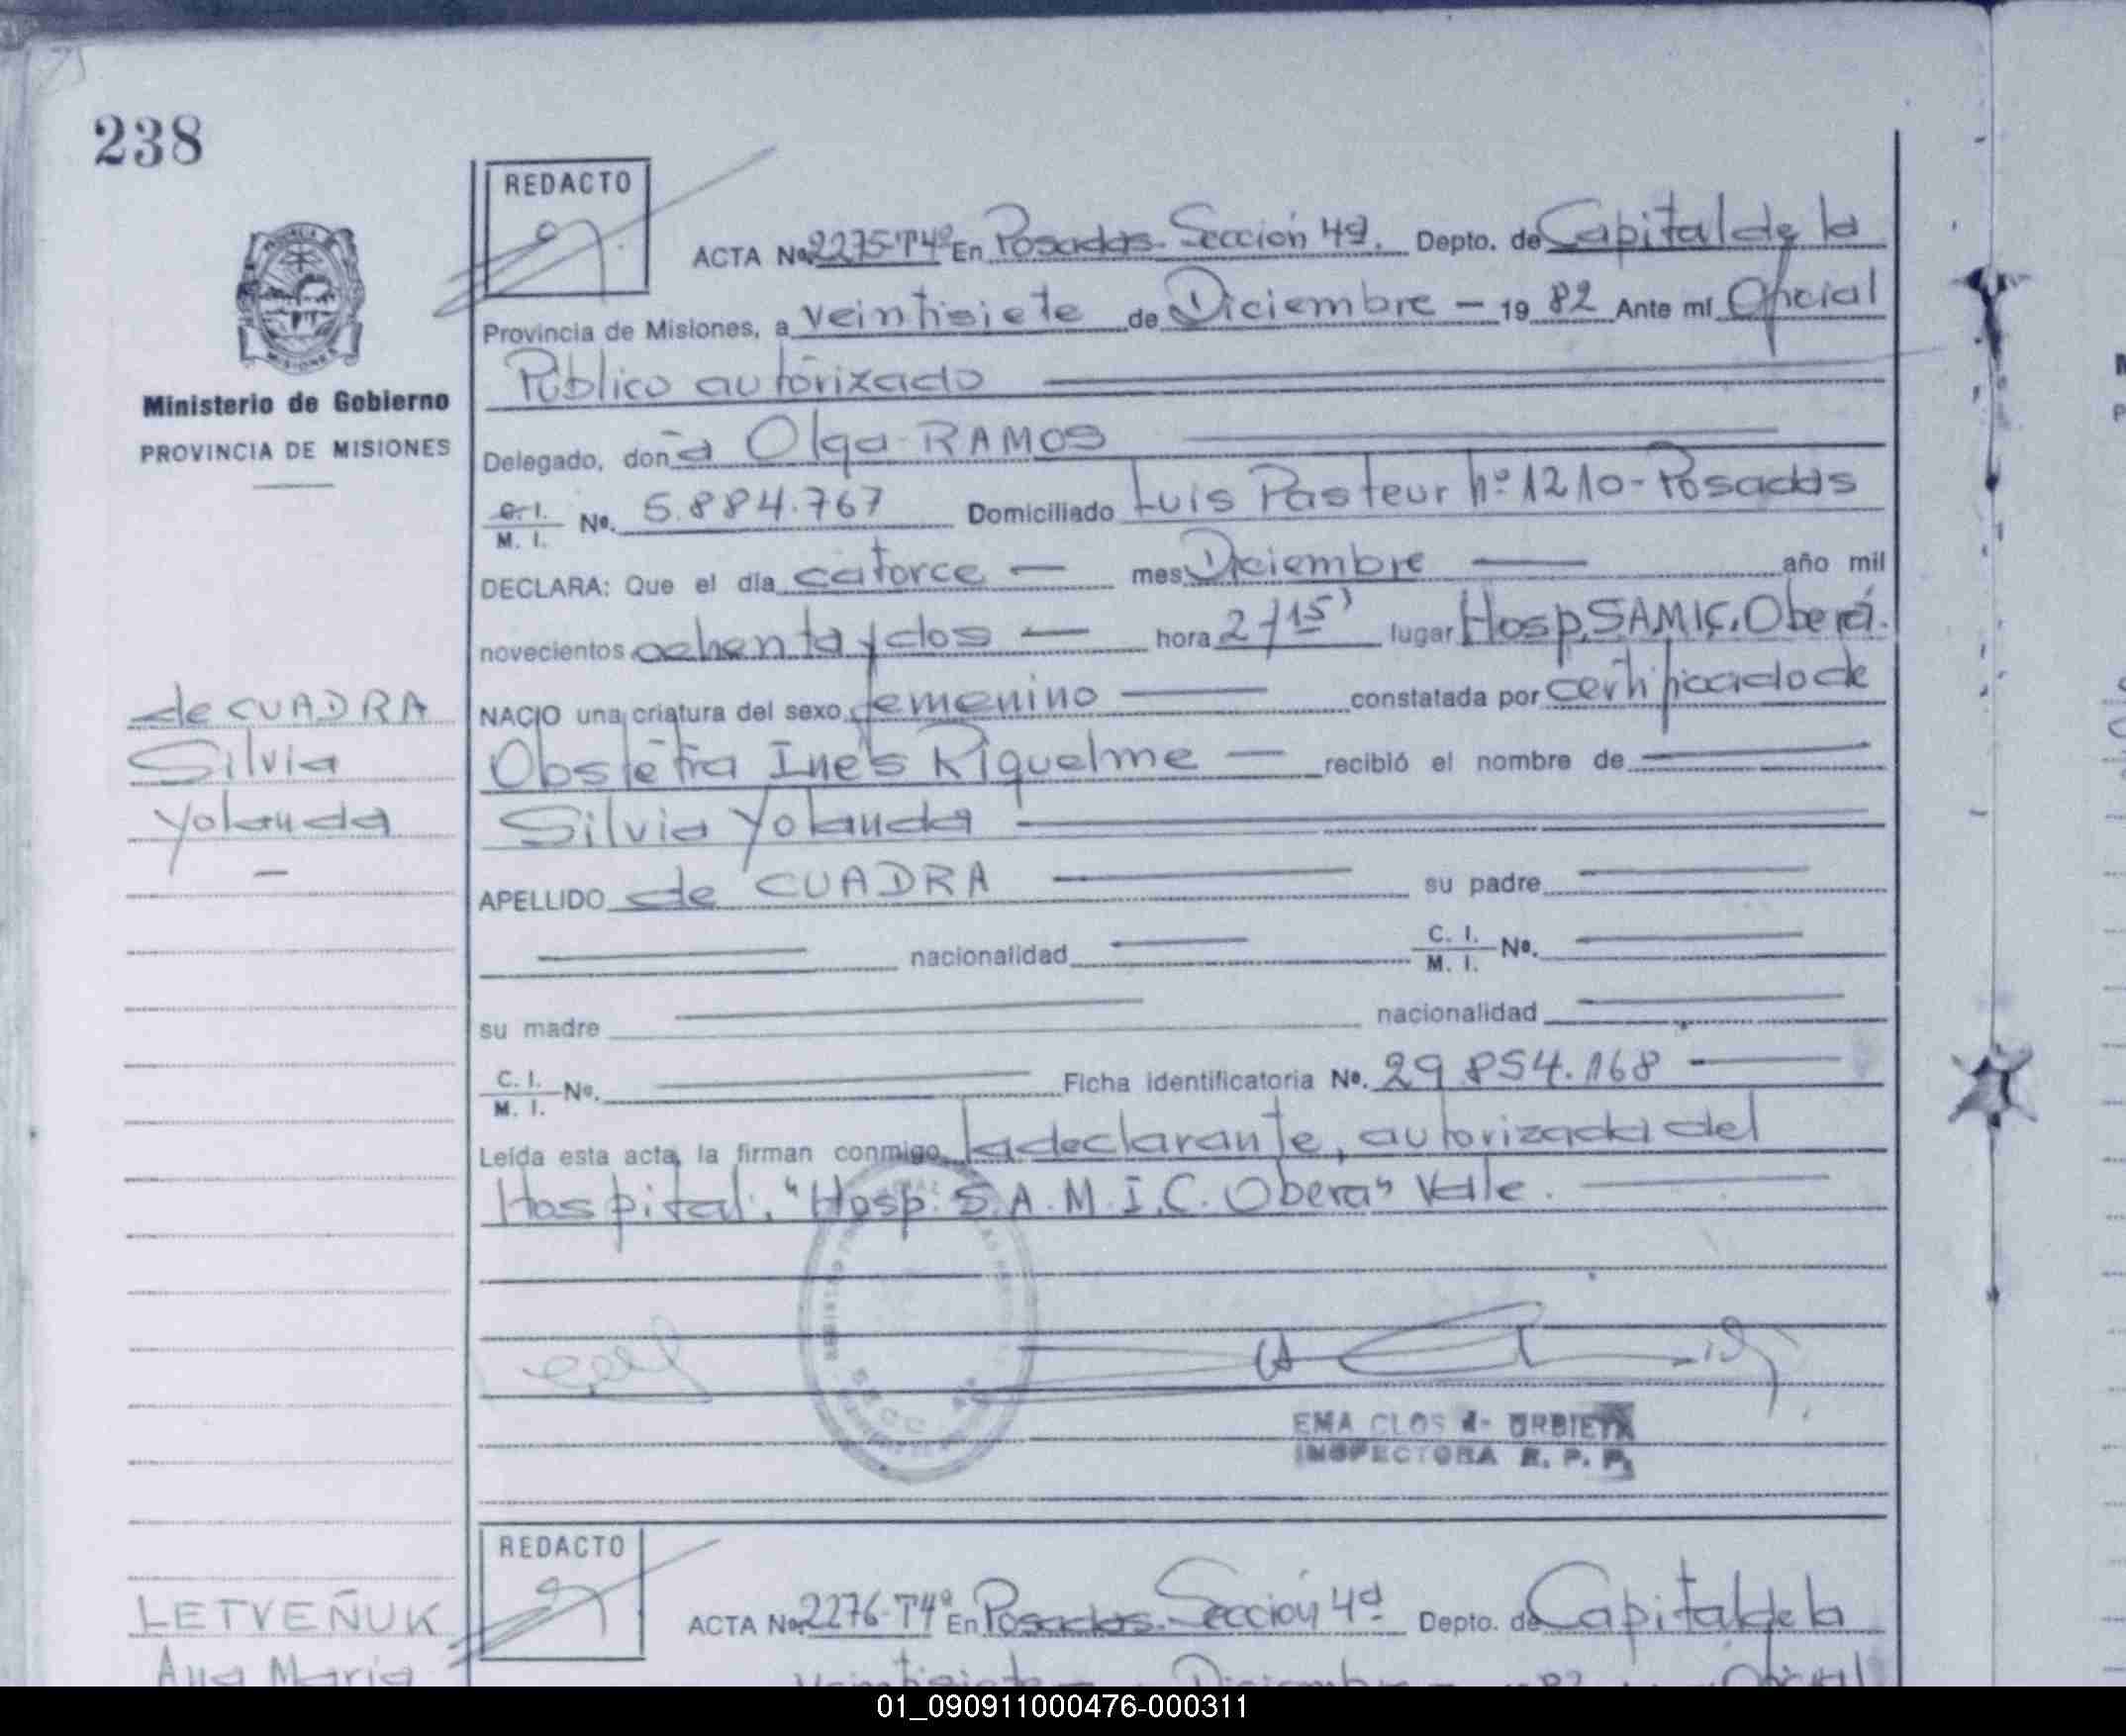 238
REDACTO
ACTA Nº 2275-T4º En Posadas. Sección 4ª. Depto. de Capital de la
Provincia de Misiones, a veintisiete de Diciembre — 19 82 Ante mí Oficial
Público autorizado
Ministerio de Gobierno
PROVINCIA DE MISIONES
Delegado, doña Olga RAMOS
C. I. / M. I. Nº. 5.884.767 Domiciliado Luis Pasteur nº 1210 - Posadas
DECLARA: Que el día catorce — mes Diciembre — año mil
novecientos ochenta y dos — hora lugar Hosp. SAMIC. Oberá.
NACIO una criatura del sexo femenino — constatada por certificado de
Obstetra Inés Riquelme — recibió el nombre de
Silvia Yolanda
APELLIDO de CUADRA su padre
nacionalidad C. I. / M. I. Nº.
su madre nacionalidad
C. I. / M. I. Nº. Ficha identificatoria Nº. 29.854.168
Leída esta acta, la firman conmigo la declarante, autorizada del
Hospital. "Hosp. S.A.M.I.C. Obera" Vale.
de CUADRA
Silvia
Yolanda
—
EMA CLOS de URBIETA
INSPECTORA R. P. P.
REDACTO
ACTA Nº 2276-T4º En Posadas. Sección 4ª Depto. de Capital de la
LETVEÑUK
Ana María
veintisiete — Diciembre — 82 Oficial
01_090911000476-000311